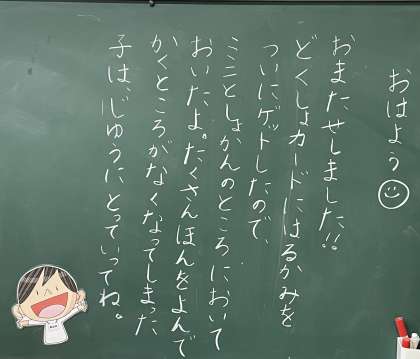 おはよう
おまたせしました!!
どくしょカードにはるかみを
ついにゲットしたので、
ミニとしょかんのところにおいて
おいたよ。たくさんほんをよんで
かくところがなくなってしまった
子は、じゆうにとっていってね。